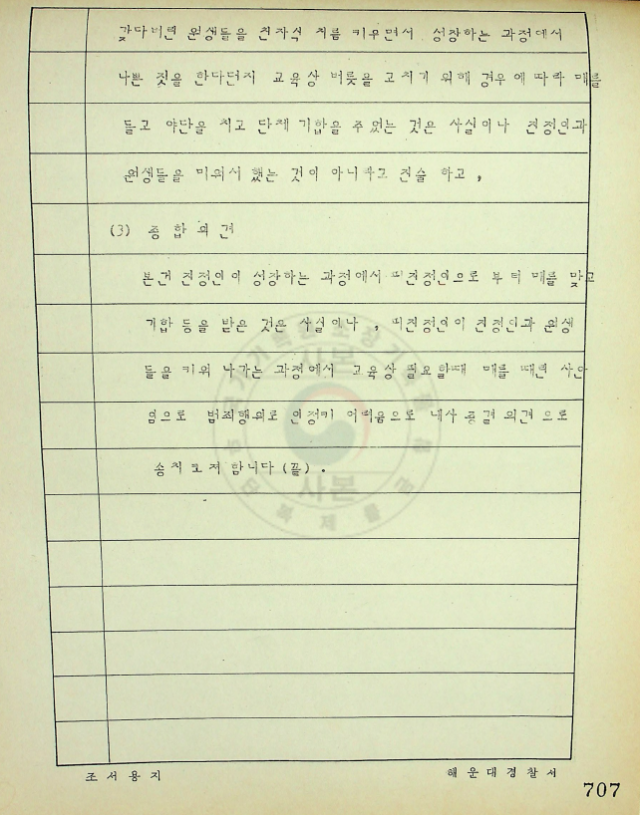 갖다버린 원생들을 친자식 처럼 키우면서 성장하는 과정에서
나쁜 짓을 한다던지 교육상 버릇을 고치기 위해 경우에 따라 매를
들고 야단을 치고 단체 기합을 주었는 것은 사실이나 진정인과
원생들을 미워서 했는 것이 아니라고 진술 하고,
(3) 종합의견
본건 진정인이 성장하는 과정에서 피진정인으로 부터 매를 맞고
기합 등을 받은 것은 사실이나, 피진정인이 진정인과 원생
들을 키워 나가는 과정에서 교육상 필요할때 매를 때린 사안
임으로 범죄행위로 인정키 어려움으로 내사 종결 의견 으로
송치코저 합니다(끝).
사본
사본
조서용지 해운대경찰서
707